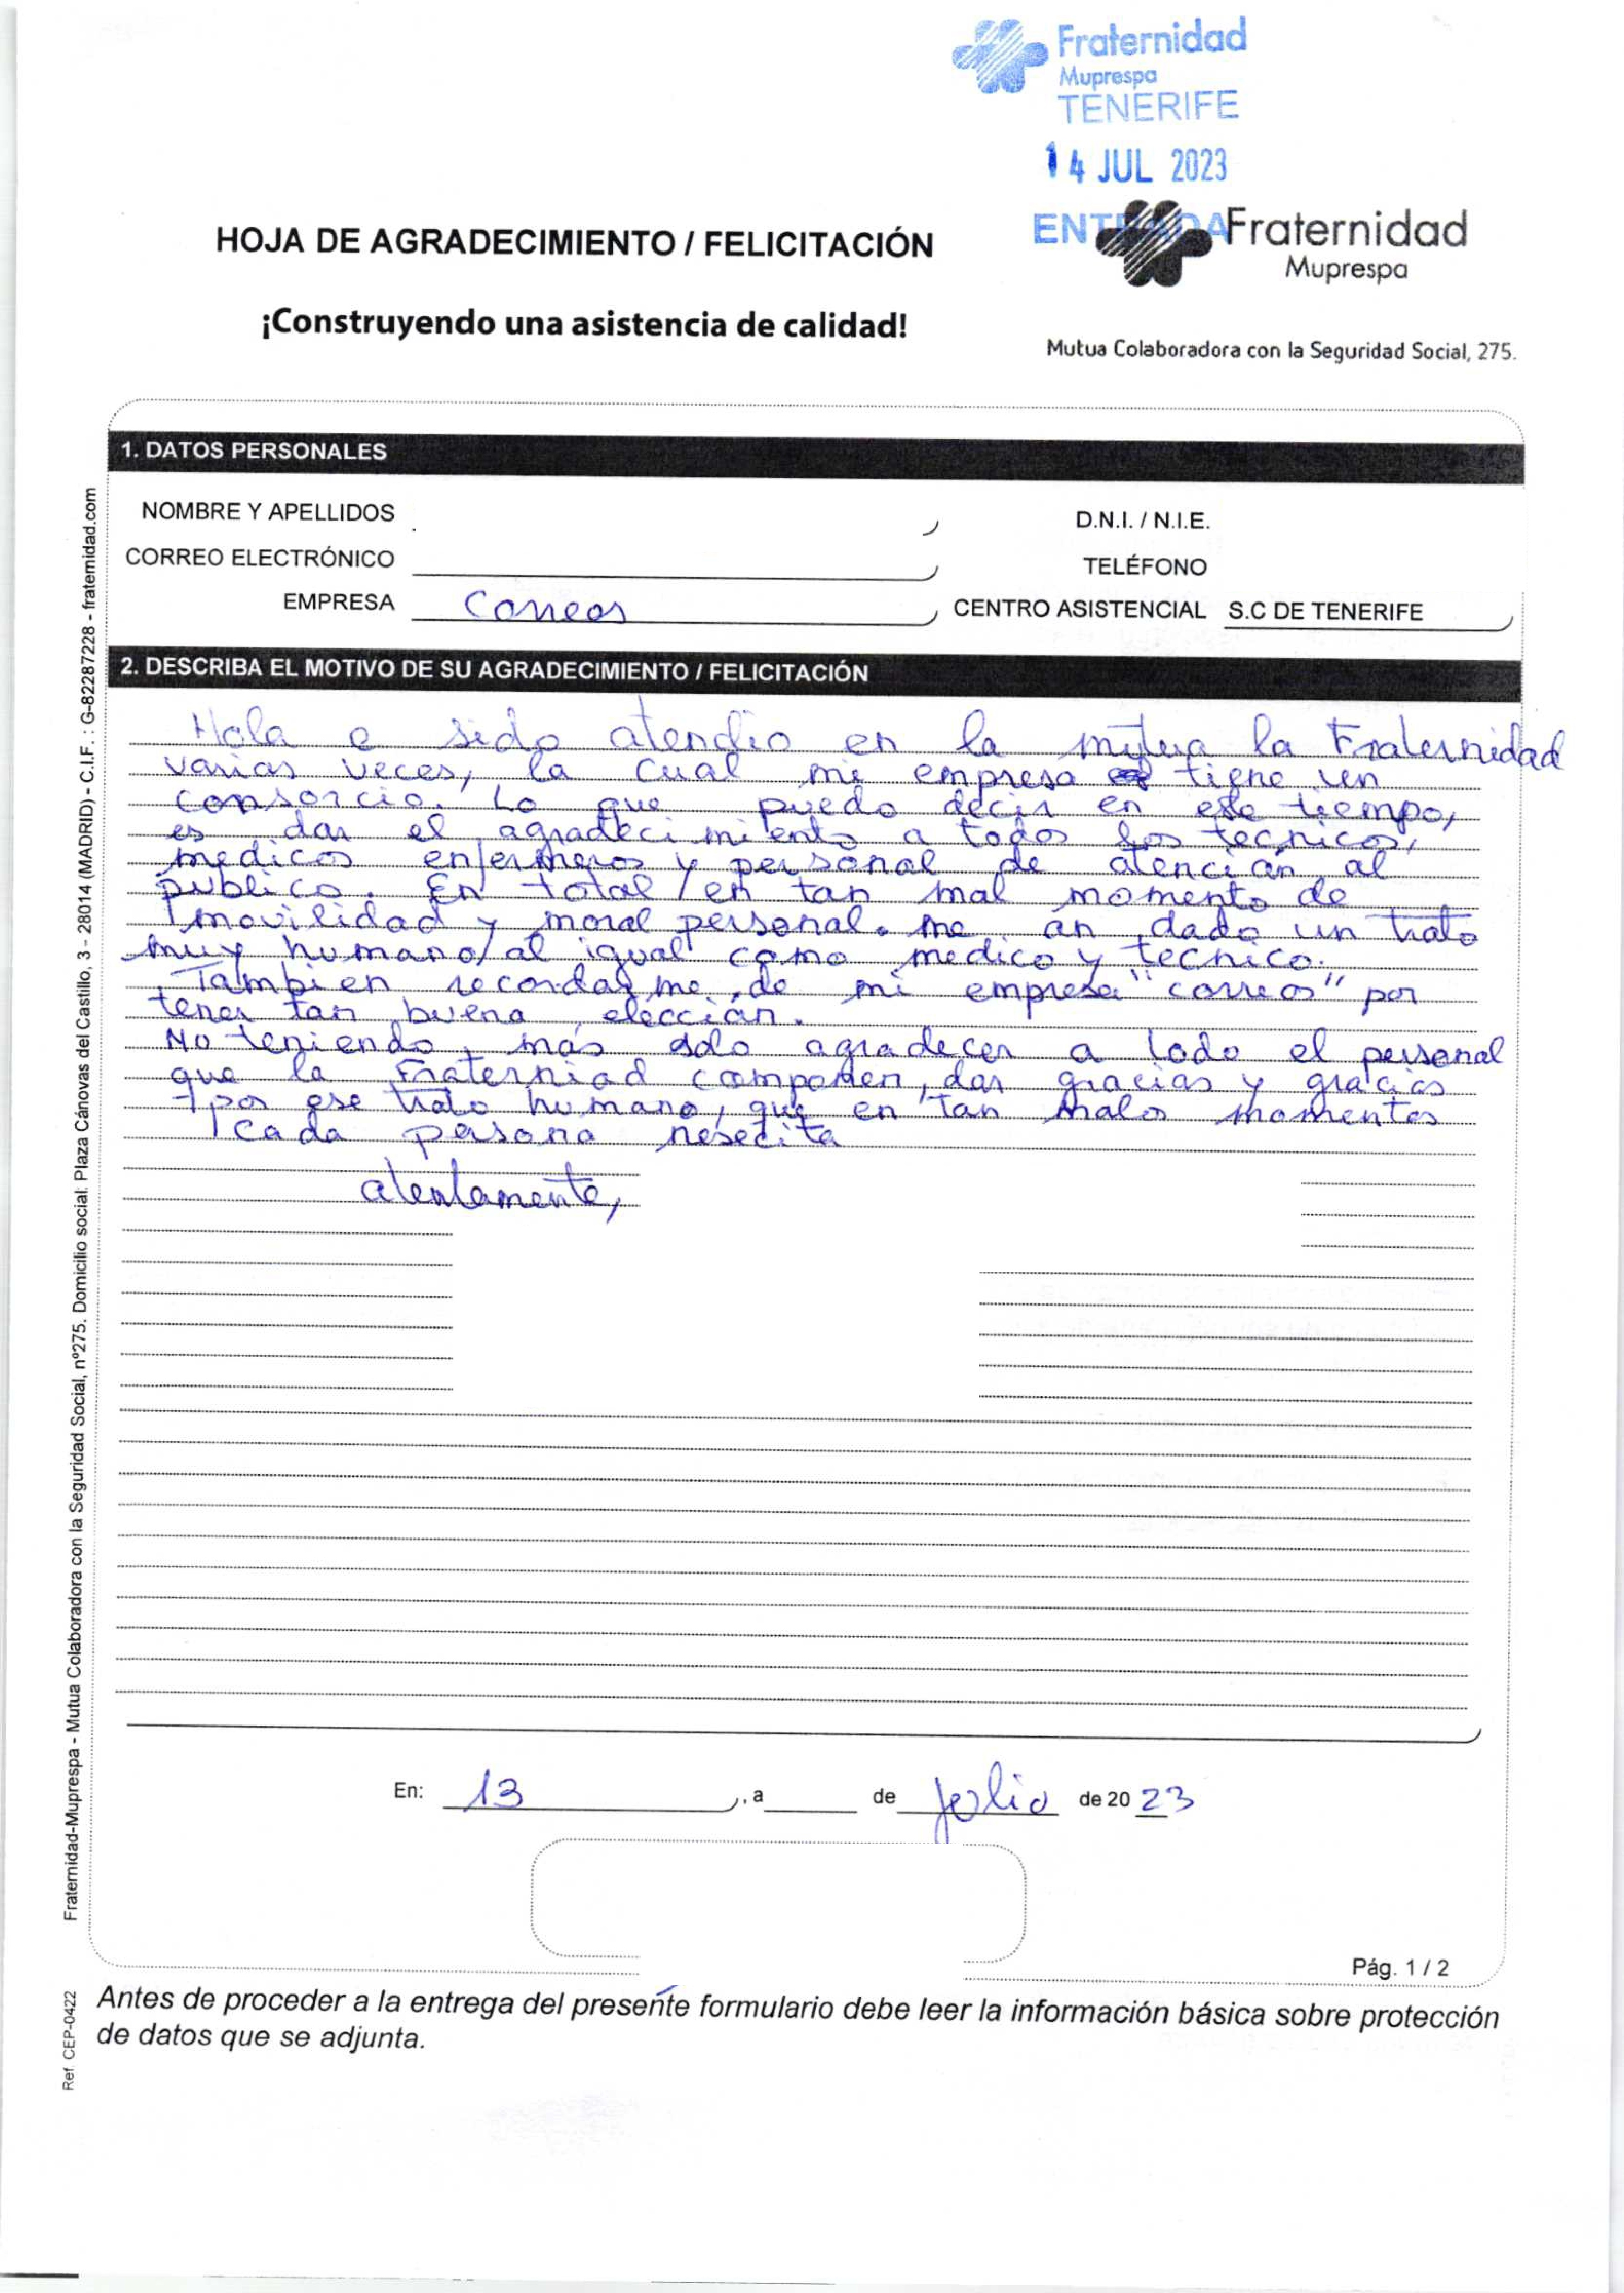 Fraternidad
Muprespa
TENERIFE
14 JUL 2023
ENTRADA
HOJA DE AGRADECIMIENTO / FELICITACIÓN
Fraternidad
Muprespa
¡Construyendo una asistencia de calidad!
Mutua Colaboradora con la Seguridad Social, 275.
1. DATOS PERSONALES
NOMBRE Y APELLIDOS
D.N.I. / N.I.E.
CORREO ELECTRÓNICO
TELÉFONO
EMPRESA Correos
CENTRO ASISTENCIAL S.C DE TENERIFE
2. DESCRIBA EL MOTIVO DE SU AGRADECIMIENTO / FELICITACIÓN
Hola e sido atendio en la mutua la Fraternidad
varias veces, la cual mi empresa tiene un
consorcio. Lo que puedo decir en este tiempo,
es dar el agradecimiento a todos los tecnicos,
medicos enfermeros y personal de atención al
publico. En total / en tan mal momento de
movilidad y moral personal. me an dado un trato
muy humano / al igual como medico y tecnico.
Tambien recordarme de mi empresa "correos" por
tener tan buena elección.
No teniendo más solo agradecer a todo el personal
que la Fraterniad componen, dar gracias y gracias
por ese trato humano, que en tan malos momentos
cada persona nesecita
atentamente,
En: 13 , a de julio de 20 23
Pág. 1 / 2
Antes de proceder a la entrega del presente formulario debe leer la información básica sobre protección
de datos que se adjunta.
Fraternidad-Muprespa - Mutua Colaboradora con la Seguridad Social, nº275. Domicilio social: Plaza Cánovas del Castillo, 3 - 28014 (MADRID) - C.I.F. : G-82287228 - fraternidad.com
Ref. CEP-0422